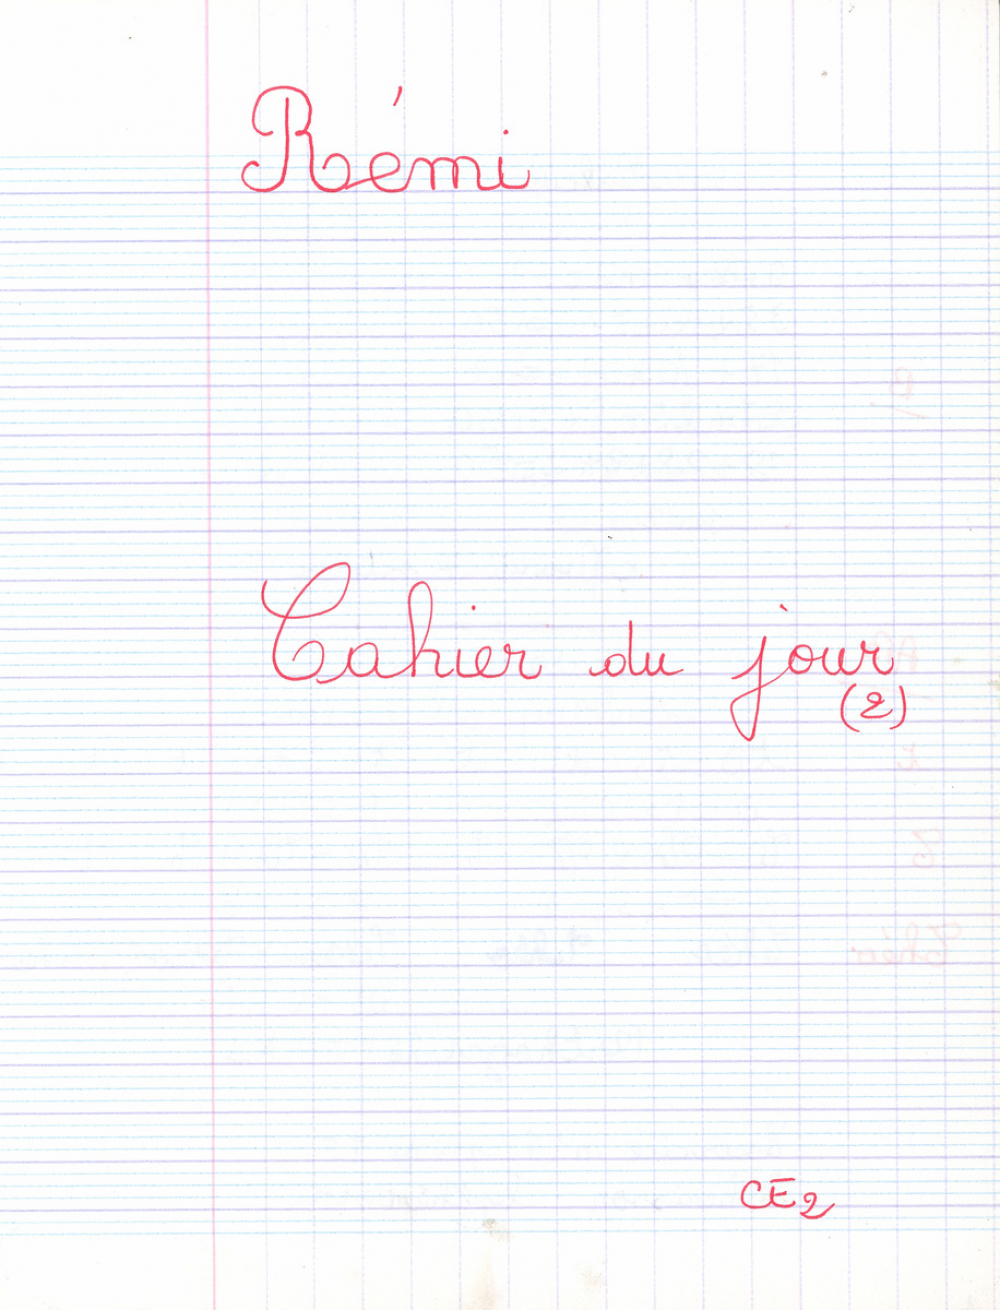 Rémi
Cahier du jour
(2)
CE2